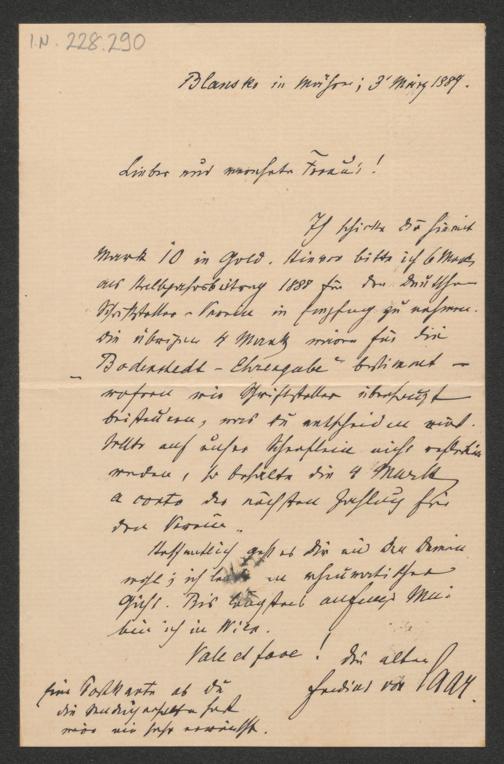 I.N. 228.290
Blansko in Mähren; 3' März 1889.
Lieber und verehrter Freund!
Ich schicke Dir hiemit
Mark 10 in Gold. Hievon bitte ich 6 Mark
als Halbjahrsbeitrag 1888 für den Deutschen
Schriftsteller-Verein in Empfang zu nehmen.
Die übrigen 4 Mark wären für die
„Bodenstedt-Ehrengabe" bestimmt –
wofern wir Schriftsteller überhaupt
beisteuern, was Du entscheiden wirst.
Sollte auf unser Scherflein nicht reflectirt
werden, so behalte die 4 Mark
a conto der nächsten Zahlung für
den Verein.
Hoffentlich geht es Dir und den Deinen
wohl; ich an rheumatischer
Gicht. Bis längstens anfangs Mai
bin ich in Wien.
Vale et fave! Dein alter
Ferdinand von Saar.
Eine Postkarte ob Du
die Sendung erhalten hast
wäre mir sehr erwünscht.